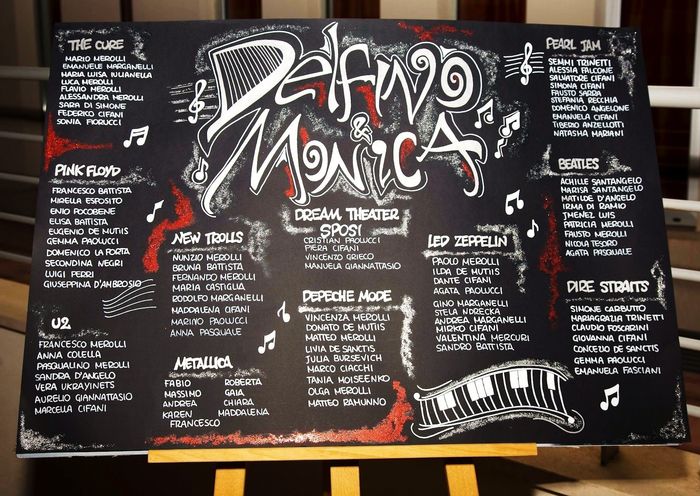 Delfino
&
Monica
THE CURE
MARIO MEROLLI
EMANUELE MARGANELLI
MARIA LUISA IULIANELLA
LUCA MEROLLI
FLAVIO MEROLLI
ALESSANDRA MEROLLI
SARA DI SIMONE
FEDERICO CIFANI
SONIA FIORUCCI
PINK FLOYD
FRANCESCO BATTISTA
MIRELLA ESPOSITO
ENIO POCOBENE
ELISA BATTISTA
EUGENIO DE MUTIIS
GEMMA PAOLUCCI
DOMENICO LA PORTA
SECONDINA NEGRI
LUIGI PERRI
GIUSEPPINA D'AMBROSIO
U2
FRANCESCO MEROLLI
ANNA COLELLA
PASQUALINO MEROLLI
SANDRA D'ANGELO
VERA UKRAYINETS
AURELIO GIANNATTASIO
MARCELLA CIFANI
NEW TROLLS
NUNZIO MEROLLI
BRUNA BATTISTA
FERNANDO MEROLLI
MARIA CASTIGLIA
RODOLFO MARGANELLI
MADDALENA CIFANI
MARINO PAOLUCCI
ANNA PASQUALE
METALLICA
FABIO ROBERTA
MASSIMO GAIA
ANDREA CHIARA
KAREN MADDALENA
FRANCESCO
DREAM THEATER
SPOSI
CRISTIAN PAOLUCCI
PIERA CIFANI
VINCENZO GRIECO
MANUELA GIANNATTASIO
DEPECHE MODE
VINCENZA MEROLLI
DONATO DE MUTIIS
MATTEO MEROLLI
LIVIA DE SANCTIS
JULIA BURSEVICH
MARCO CIACCHI
TANIA MOISEENKO
OLGA MEROLLI
MATTEO RAMUNNO
LED ZEPPELIN
PAOLO MEROLLI
ILDA DE MUTIIS
DANTE CIFANI
AGATA PAOLUCCI
GINO MARGANELLI
STELA NDRECKA
ANDREA MARGANELLI
MIRKO CIFANI
VALENTINA MERCURI
SANDRO BATTISTA
PEARL JAM
SEMMI TRINETTI
ALESSIA FALCONE
SALVATORE CIFANI
SIMONA CIFANI
FAUSTO SARRA
STEFANIA RECCHIA
DOMENICO ANGELONE
EMANUELA CIFANI
TIBERIO ANZELLOTTI
NATASHA MARIANI
BEATLES
ACHILLE SANTANGELO
MARISA SANTANGELO
MATILDE D'ANGELO
IRMA DI RAMIO
JMENEZ LUIS
PATRICIA MEROLLI
FAUSTO MEROLLI
NICOLA TESORO
AGATA PASQUALE
DIRE STRAITS
SIMONE CARBUTTO
MARIAGRAZIA TRINETTI
CLAUDIO FOSCARINI
GIOVANNA CIFANI
CONCEZIO DE SANCTIS
GEMMA PAOLUCCI
EMANUELA FASCIANI